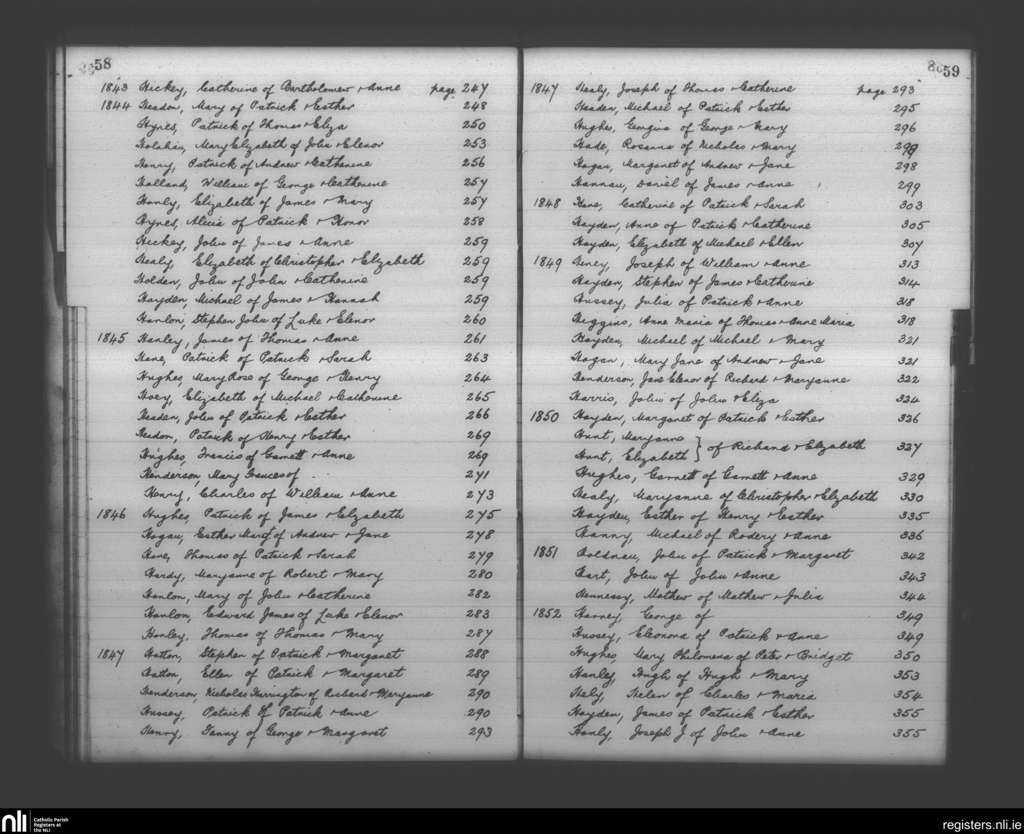 58
1843 Hickey, Catherine of Bartholomew & Anne page 247
1844 Headon, Mary of Patrick & Esther 248
Hynes, Patrick of Thomas & Eliza 250
Holohan, Mary Elizabeth of John & Ellenor 253
Henry, Patrick of Andrew & Catherine 256
Holland, William of George & Catherine 257
Hanly, Elizabeth of James & Mary 257
Hynes, Alicia of Patrick & Honor 258
Hickey, John of James & Anne 259
Healy, Elizabeth of Christopher & Elizabeth 259
Holden, John of John & Catherine 259
Hayden, Michael of James & Hannah 259
Hanlon, Stephen John of Luke & Elenor 260
1845 Hanley, James of Thomas & Anne 261
Hane, Patrick of Patrick & Sarah 263
Hughes, Mary Rose of George & Henry 264
Hoey, Elizabeth of Michael & Catherine 265
Headen, John of Patrick & Esther 266
Headon, Patrick of Henry & Esther 269
Hughes, Francis of Garnett & Anne 269
Henderson, Mary Frances of 271
Henry, Charles of William & Anne 273
1846 Hughes, Patrick of James & Elizabeth 275
Hogan, Esther Margt of Andrew & Jane 278
Hane, Thomas of Patrick & Sarah 279
Hardy, Maryanne of Robert & Mary 280
Hanlon, Mary of John & Catherine 282
Hanlon, Edward James of Luke & Elenor 283
Hanley, Thomas of Thomas & Mary 287
1847 Hatton, Stephen of Patrick & Margaret 288
Hatton, Ellen of Patrick & Margaret 289
Henderson, Nicholas Harrington of Richard & Maryanne 290
Hussey, Patrick of Patrick & Anne 290
Henry, Fanny of George & Margaret 293
59
1847 Healy, Joseph of Thomas & Catherine page 293
Headen, Michael of Patrick & Esther 295
Hughes, Georgina of George & Mary 296
Hade, Rosanna of Nicholas & Mary
Hogan, Margaret of Andrew & Jane 298
Hannan, Daniel of James & Anne 299
1848 Hane, Catherine of Patrick & Sarah 303
Hayden, Anne of Patrick & Catherine 305
Hayden, Elizabeth of Michael & Ellen 307
1849 Joseph of William & Anne 313
Hayden, Stephen of James & Catherine 314
Hussey, Julia of Patrick & Anne 318
Higgins, Anne Maria of Thomas & Anne Maria 318
Hayden, Michael of Michael & Mary 321
Hogan, Mary Jane of Andrew & Jane 321
Henderson, Jane Elenor of Richard & Maryanne 322
Harris, John of John & Eliza 324
1850 Hayden, Margaret of Patrick & Esther 326
Hunt, Maryanne
Hunt, Elizabeth } of Richard & Elizabeth 327
Hughes, Garnett of Garnett & Anne 329
Healy, Maryanne of Christopher & Elizabeth 330
Hayden, Esther of Henry & Esther 335
Hanny, Michael of Rodery & Anne 336
1851 Holdnan, John of Patrick & Margaret 342
Hart, John of John & Anne 343
Hennessy, Mathew of Mathew & Julia 344
1852 Harney, George of 349
Hussey, Eleonora of Patrick & Anne 349
Hughes, Mary Philomena of Peter & Bridget 350
Hanley, Hugh of Hugh & Mary 353
Haly, Helen of Charles & Maria 354
Hayden, James of Patrick & Esther 355
Hanly, Joseph J of John & Anne 355
nli Catholic Parish
Registers at
the NLI
registers.nli.ie